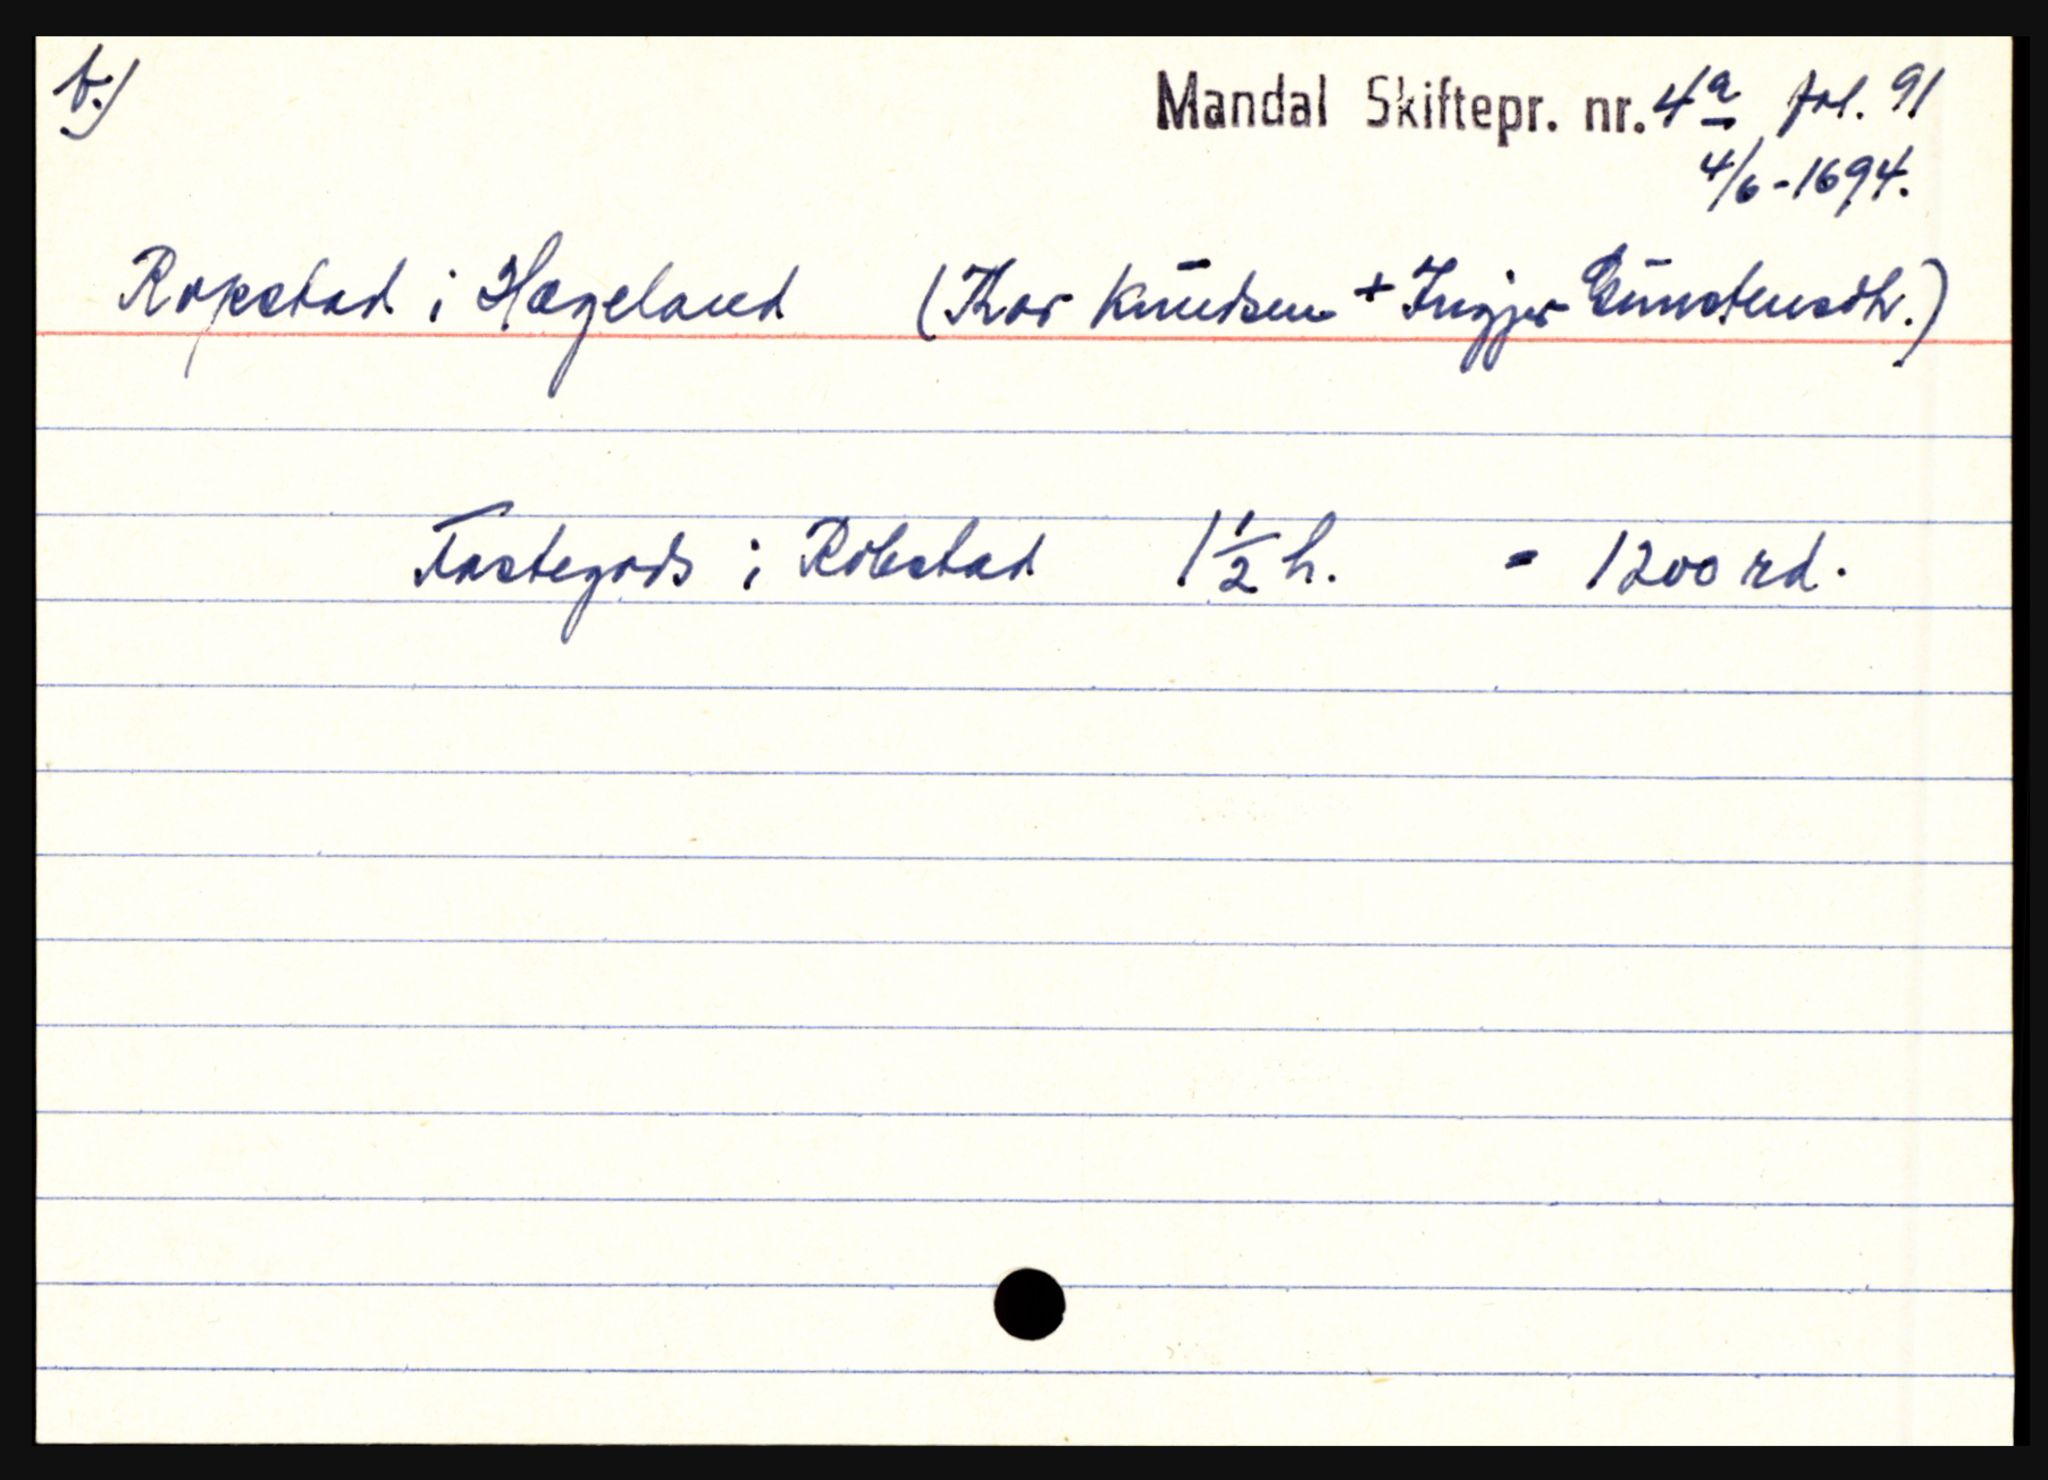 b.)
Mandal Skiftepr. nr. 4a fol. 91
4/6-1694.
Ropstad i Hægeland (Thor Knudsen + Ingjer Gunstensdtr.)
Fastegods i Robstad 1½ h. = 1200 rd.